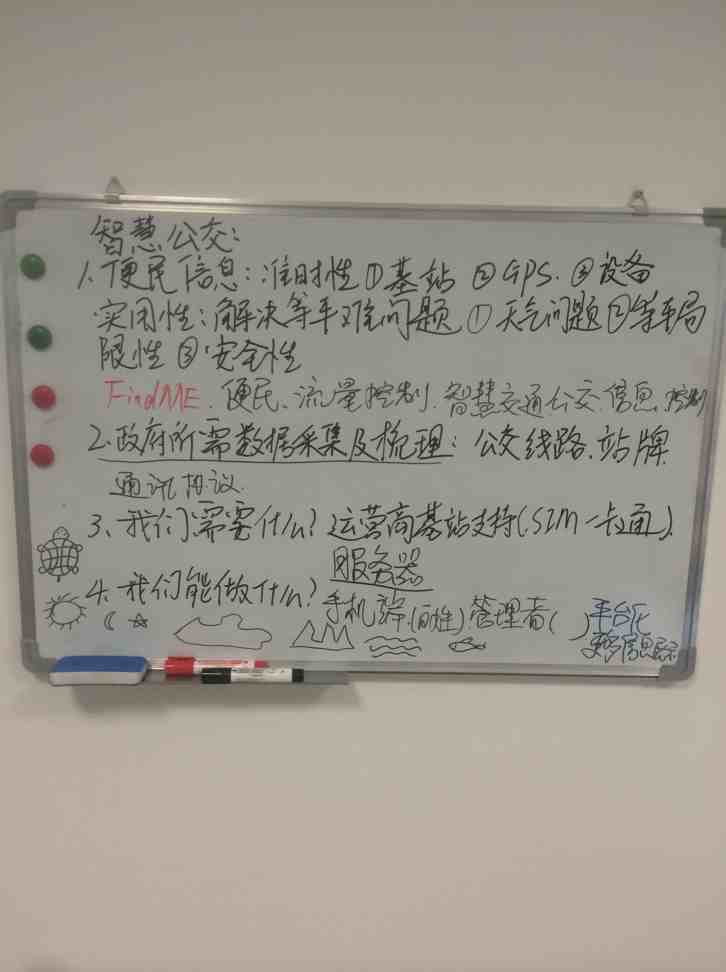 智慧公交:
1.便民信息:准时性①基站 ②GPS.③设备
实用性:解决等车难问题.①天气问题②等车局
限性 ③安全性
FindME.便民、流量控制.智慧交通公交.信息、控制
2.政府所需数据采集及梳理:公交线路.站牌.
通讯协议.
3、我们需要什么?运营商基站支持(SIM一卡通).
服务器
4.我们能做什么?手机端.管理者( )平台化
更多信息展示